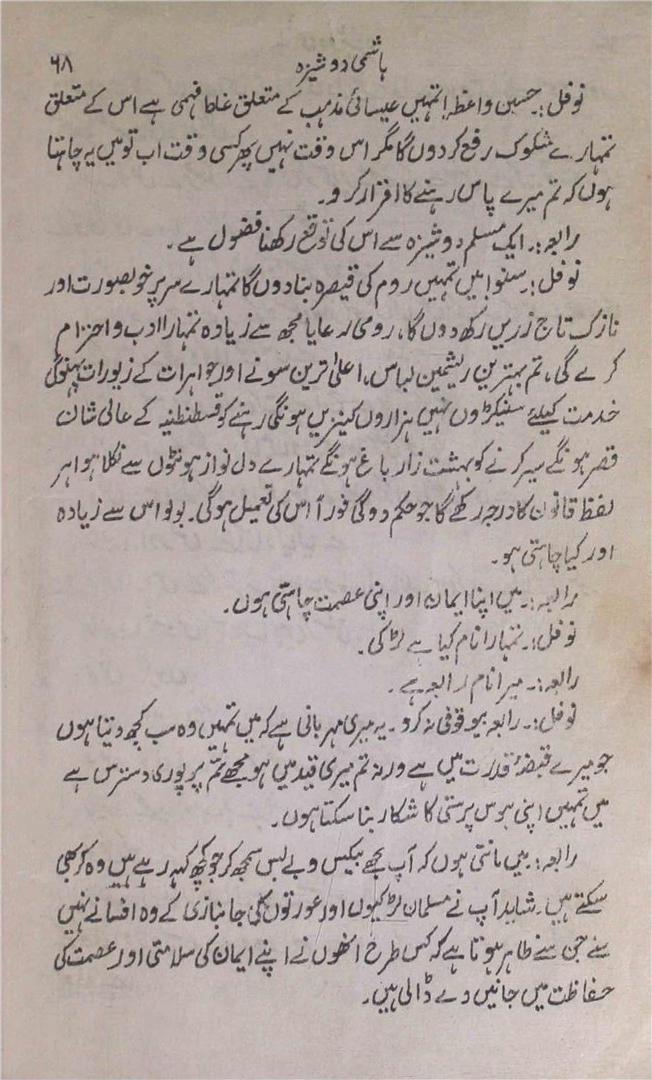 ہاشمی دوشیزہ
۶۸
نوفل:۔ حسین واعظہ! تمہیں عیسائی مذہب کے متعلق غلط فہمی ہے اس کے متعلق
تمہارے شکوک رفع کر دوں گا مگر اس وقت نہیں پھر کسی وقت اب تو میں یہ چاہتا
ہوں کہ تم میرے پاس رہنے کا اقرار کرو۔
رابعہ:۔ ایک مسلم دوشیزہ سے اس کی توقع رکھنا فضول ہے۔
نوفل:۔ سنو! میں تمہیں روم کی قیصرہ بنا دوں گا تمہارے سر پر خوبصورت اور
نازک تاج زریں رکھ دوں گا، رومی رعایا مجھ سے زیادہ تمہارا ادب و احترام
کرے گی، تم بہترین ریشمین لباس، اعلیٰ ترین سونے اور جواہرات کے زیورات پہنوگی
خدمت کیلئے سینکڑوں نہیں ہزاروں کنیزیں ہونگی رہنے کو قسطنطنیہ کے عالی شان
قصر ہونگے سیر کرنے کو بہشت زار باغ ہونگے تمہارے دل نواز ہونٹوں سے نکلا ہوا ہر
لفظ قانون کا درجہ رکھے گا جو حکم دوگی فوراً اس کی تعمیل ہوگی۔ بولو اس سے زیادہ
اور کیا چاہتی ہو۔
رابعہ:۔ میں اپنا ایمان اور اپنی عصمت چاہتی ہوں۔
نوفل:۔ تمہارا نام کیا ہے لڑکی۔
رابعہ:۔ میرا نام رابعہ ہے۔
نوفل:۔ رابعہ بیوقوفی نہ کرو۔ یہ میری مہربانی ہے کہ میں تمہیں وہ سب کچھ دیتا ہوں
جو میرے قبضۂ قدرت میں ہے ورنہ تم میری قید میں ہو مجھے تم پر پوری دسترس ہے
میں تمہیں اپنی ہوس پرستی کا شکار بنا سکتا ہوں۔
رابعہ:۔ میں مانتی ہوں کہ آپ مجھے بیکس و بے بس سمجھ کر جو کچھ کہہ رہے ہیں وہ کر بھی
سکتے ہیں۔ شاید آپ نے مسلمان لڑکیوں اور عورتوں کی جانبازی کے وہ افسانے نہیں
سنے جن سے ظاہر ہوتا ہے کہ کس طرح انھوں نے اپنے ایمان کی سلامتی اور عصمت کی
حفاظت میں جانیں دے ڈالی ہیں۔